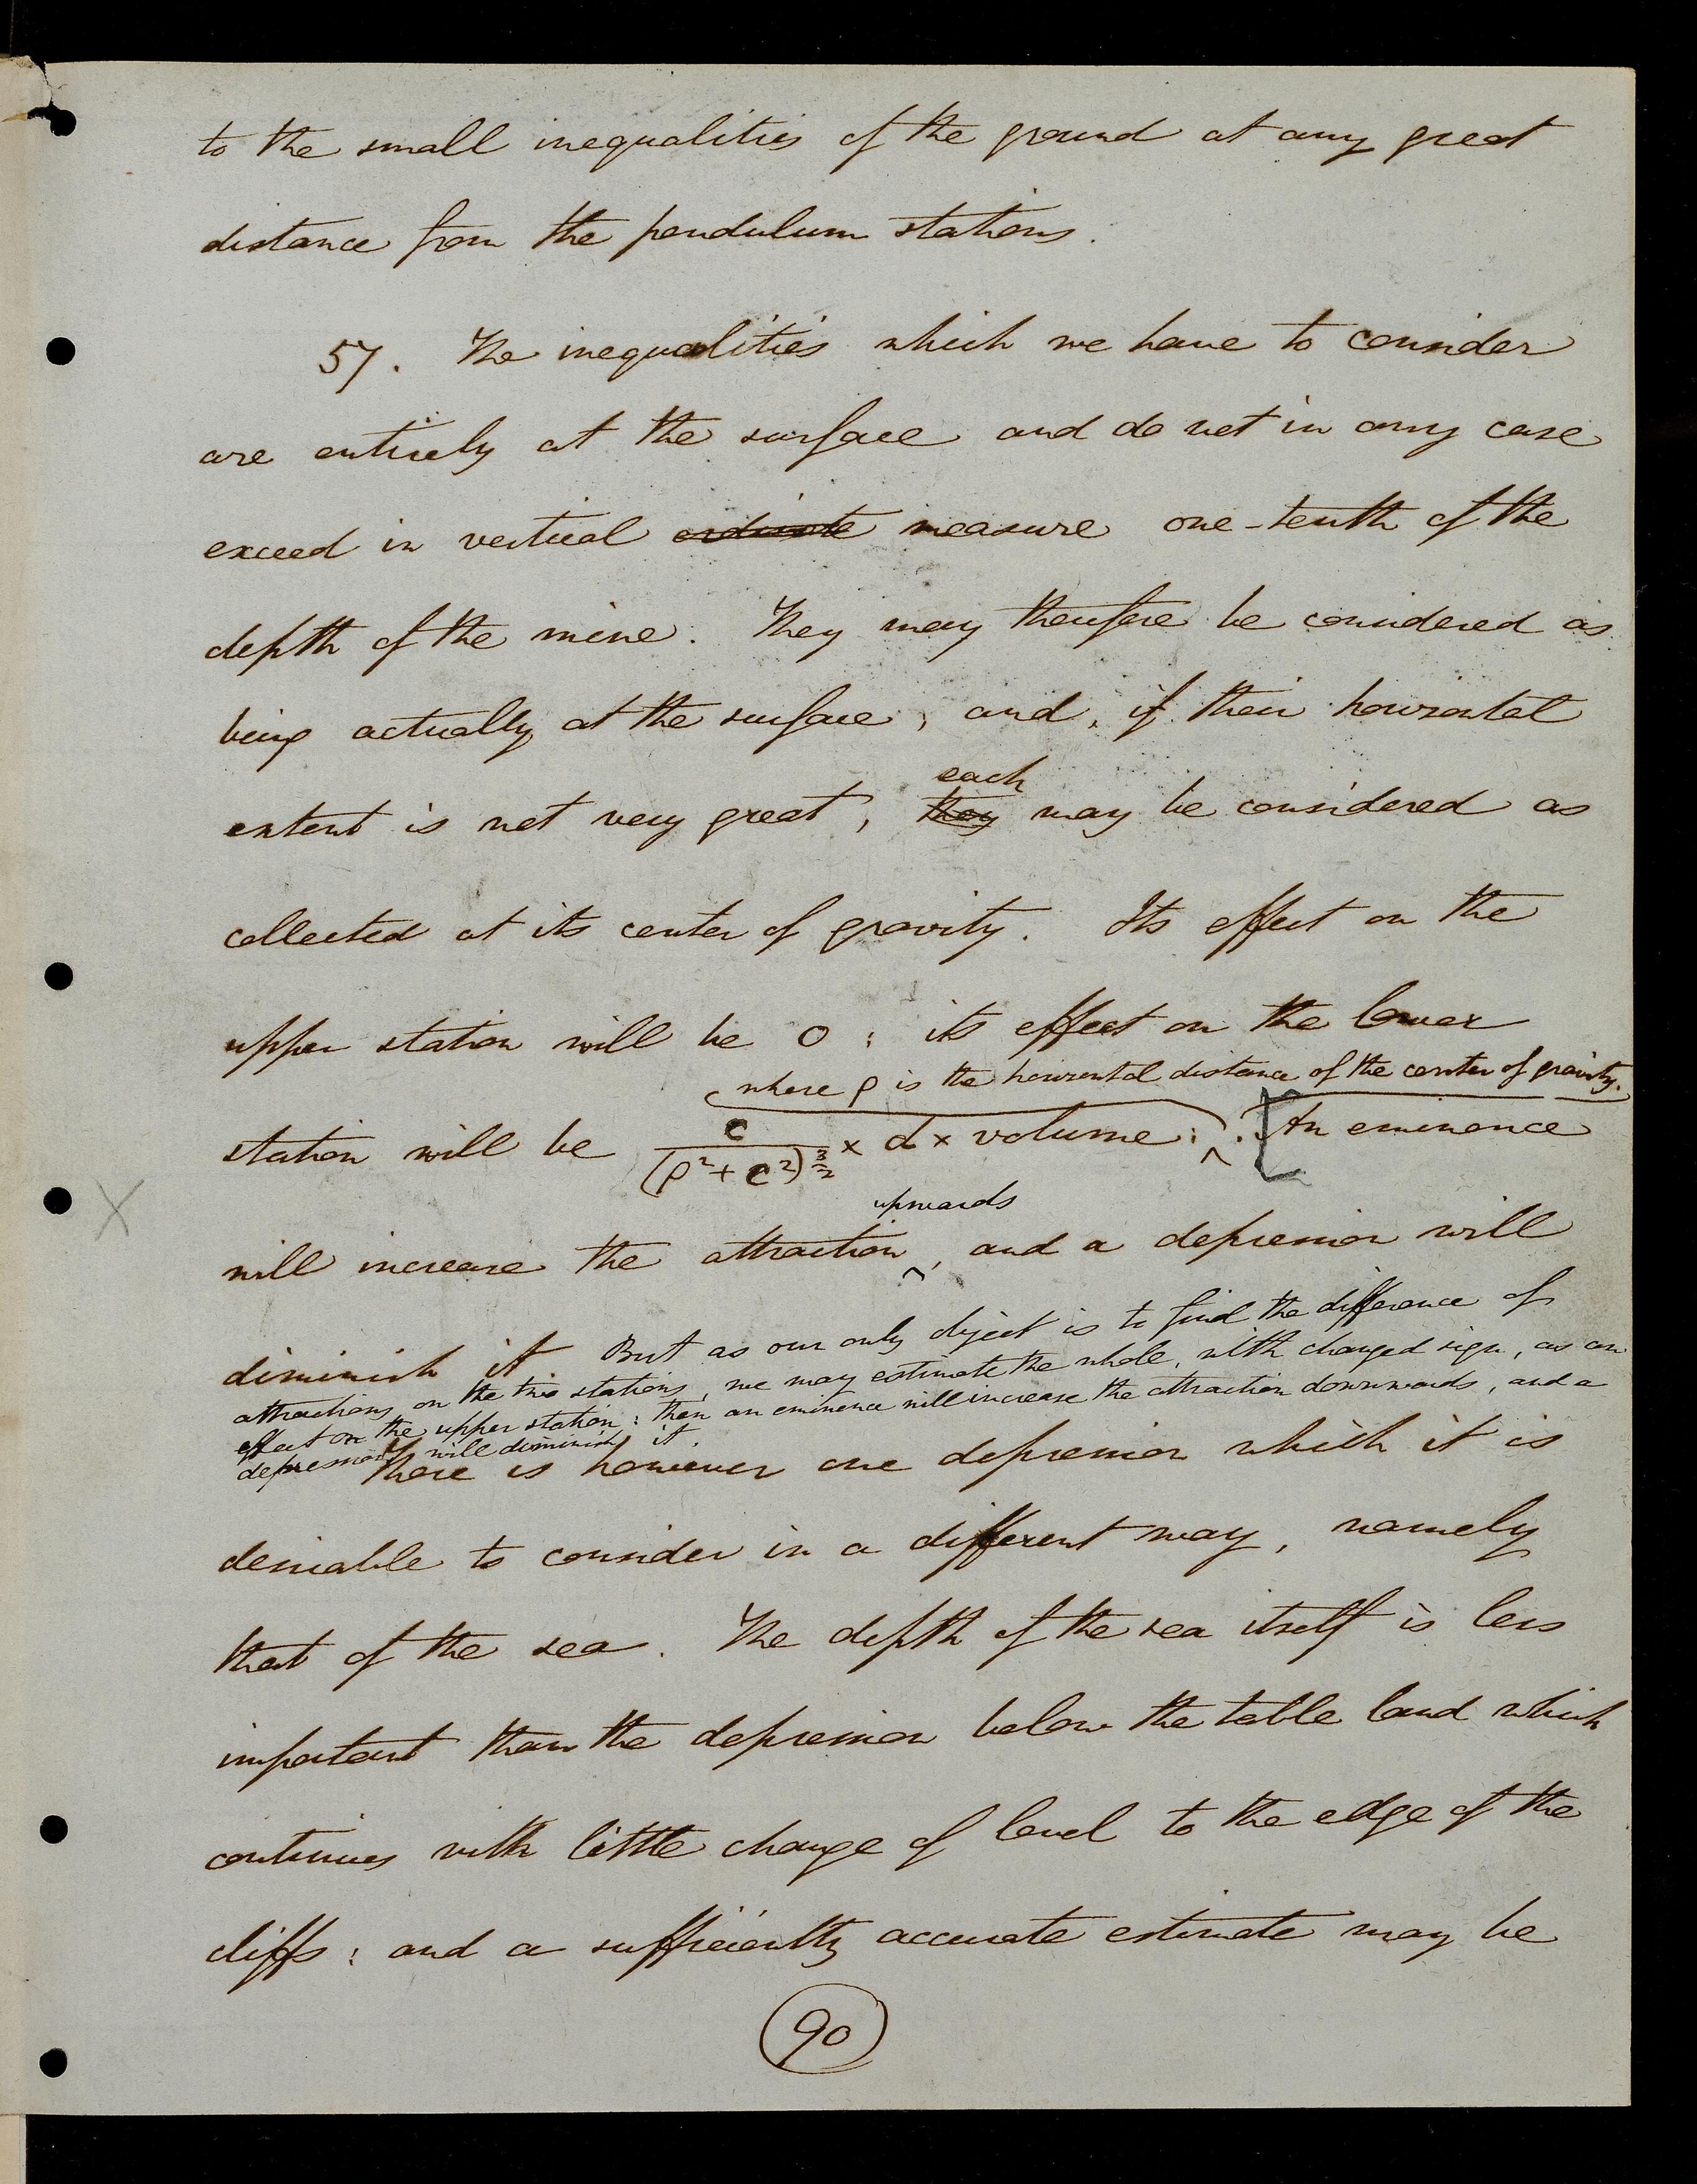 to the small inequalities of the ground at any great
distance from the pendulum stations.
57. The inequalities which we have to consider
are entirely at the surface and do not in any case
exceed in vertical ordinate measure one-tenth of the
depth of the mine. They may therefore be considered as
being actually at the surface; and, if their horizontal
each
extent is not very great, they may be considered as
collected at its center of gravity. Its effect on the
upper station will be 0; its effect on the lower
where ρ is the horizontal distance of the center of gravity.
station will be c/(ρ²+c²)^3/2 × d × volume: . [An eminence
upwards
will increase the attraction ‸, and a depression will
diminish it. But as our only object is to find the difference of
attractions on the two stations, we may estimate the whole, with changed sign, as an
effect on the upper station: then an eminence will increase the attraction downwards, and a
depression will diminish it.
There is however one depression which it is
desirable to consider in a different way, namely
that of the sea. The depth of the sea itself is less
important than the depression below the table land which
continues with little change of level to the edge of the
cliffs: and a sufficiently accurate estimate may be
90